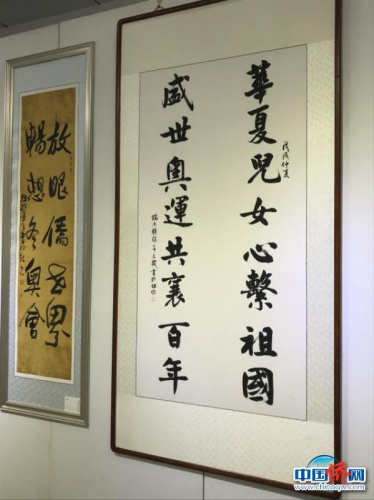 華夏兒女心繫祖國
戊戌仲夏
盛世奧運共襄百年
放眼僑世界
暢想冬奧會
中国侨网
www.chinaqw.com